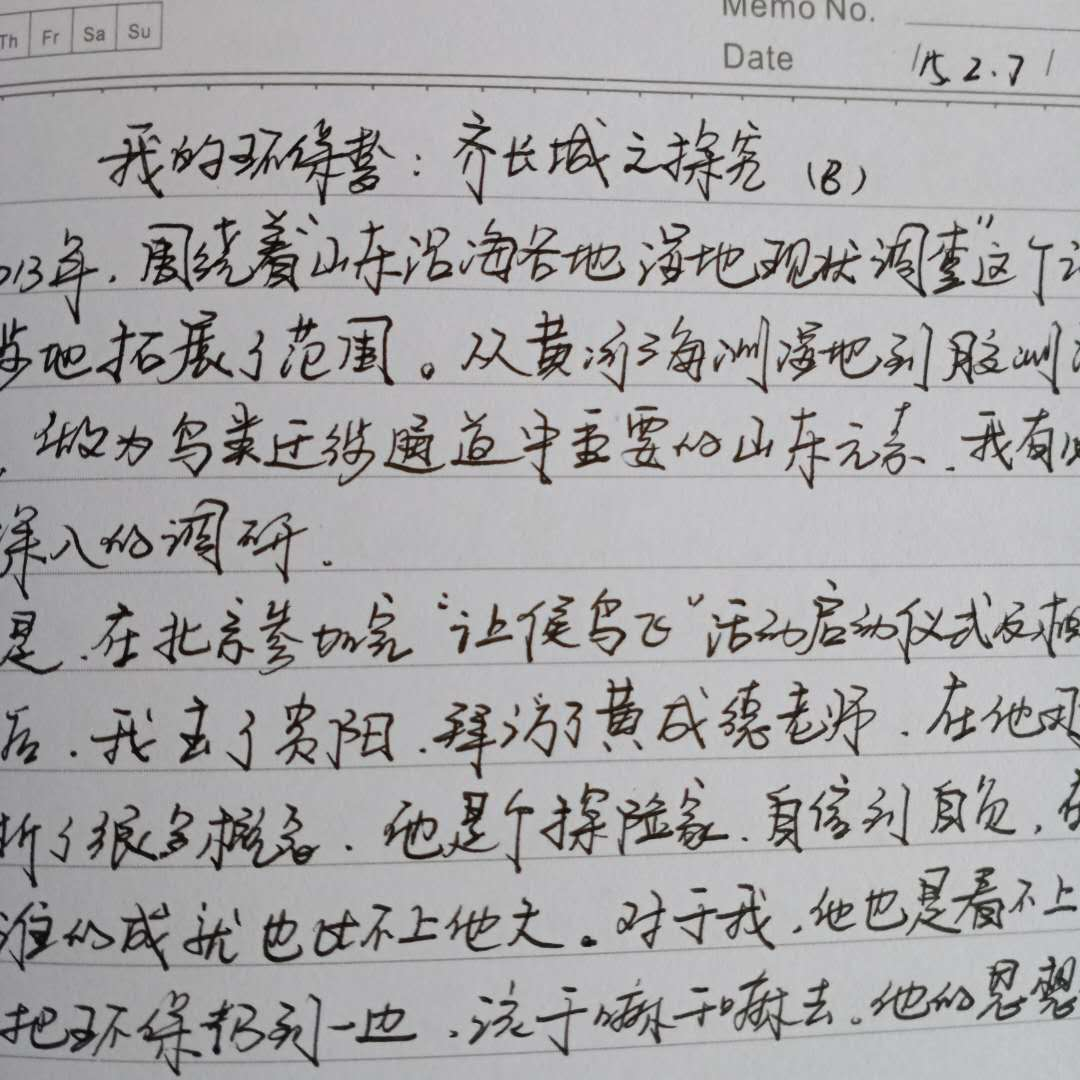 Th Fr Sa Su
Memo No.
Date 15.2.7
我的环保梦：齐长城之探究（8）
013年，围绕着“山东沿海各地湿地现状调查”这个
地拓展了范围。从黄河三角洲湿地到胶州
做为鸟类迁徙通道中重要的山东元素，我有
深入的调研。
是，在北京参加完“让候鸟飞”活动启动仪式及相
后，我去了贵阳，拜访了黄成德老师，在他
析了很多概念。他是个探险家，自信到自负，在
谁的成就也比不上他大。对于我，他也是看不上
把环保扔到一边，该干嘛干嘛去。他的思想